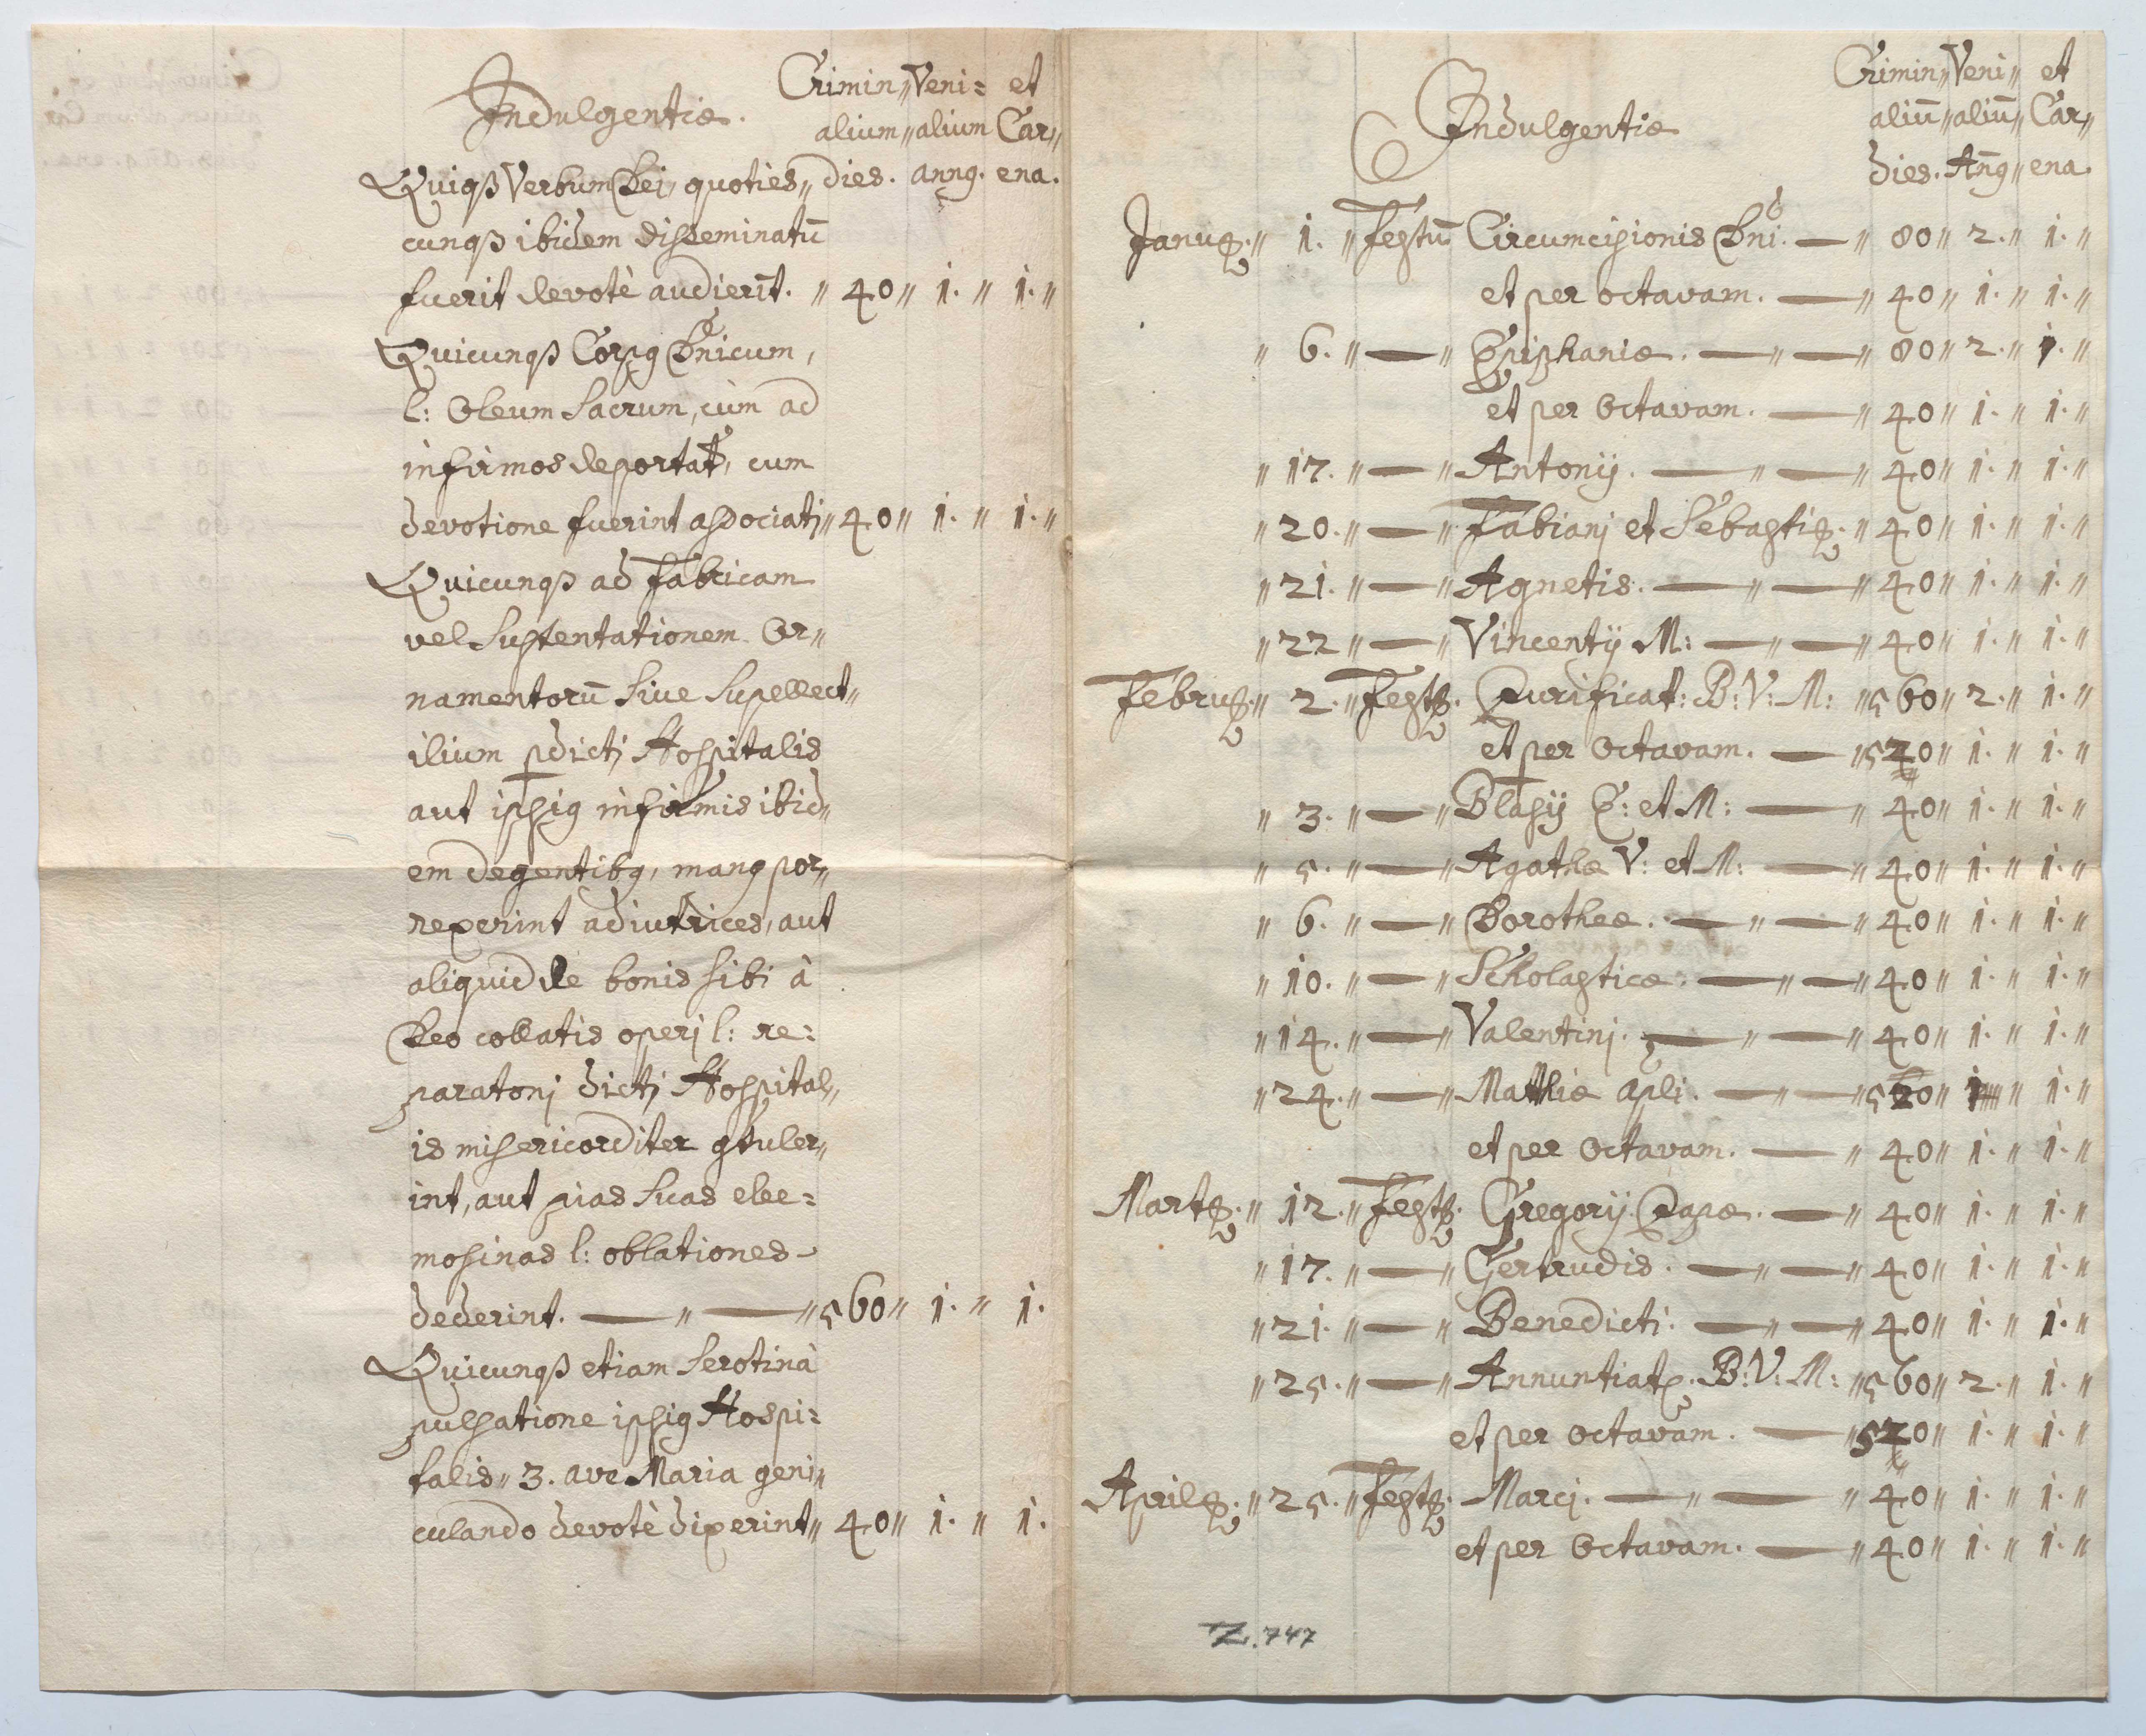 Indulgentiæ.
Crimin〃 Veni= et
alium〃 alium Car〃
Quiqß Verbum Dei, quoties〃 dies. anng. ena.
cunqß ibidem disseminatū
fuerit devotè audierīt. 〃 40 〃 1. 〃 1. 〃
Quicunqß Corpg Dnicum,
l: Oleum Sacrum, cùm ad
infirmos deportat, cum
devotione fuerint associati 〃 40 〃 1. 〃 1. 〃
Quicunqß ad fabricam
vel Sustentationem Or〃
namentorū Sive Supellect〃
ilium pdictj Hospitalis
aut ipsig infirmis ibid〃
em degentibg, mang por〃
rexerint adiutrices, aut
aliquid de bonis sibi à
Deo collatis operj l: re=
paratonj dictj Hospital〃
is misericorditer gtuler〃
int, aut pias Suas elee=
mosinas l: oblationes
dederint. — 〃 — 〃 560 〃 1. 〃 1.
Quicunqß etiam Serotinâ
pulsatione ipsig Hospi=
talis 〃 3. ave Maria geni〃
culando devotè dixerint 〃 40 〃 1. 〃 1.
Indulgentiæ
Crimin〃 Veni〃 et
aliū〃 aliū〃 Car〃
dies. Ang〃 ena.
Janug. 〃 1. 〃 festū Circumcisionis Dni. — 〃 80 〃 2. 〃 1. 〃
et per octavam. — 〃 40 〃 1. 〃 1. 〃
〃 6. 〃 — 〃 Epiphaniæ. — 〃 — 〃 80 〃 2. 〃 1. 〃
et per Octavam. — 〃 40 〃 1. 〃 1. 〃
〃 17. 〃 — 〃 Antonij. — 〃 — 〃 40 〃 1. 〃 1. 〃
〃 20. 〃 — 〃 Fabianj et Sebastig. 〃 40 〃 1. 〃 1. 〃
〃 21. 〃 — 〃 Agnetis. — 〃 — 〃 40 〃 1. 〃 1. 〃
〃 22 〃 — 〃 Vincentij M: — 〃 — 〃 40 〃 1. 〃 1. 〃
Februg. 〃 2. 〃 festg. Purificat: B: V: M: 〃 560 〃 2. 〃 1. 〃
et per Octavam. — 〃 520 〃 1. 〃 1. 〃
〃 3. 〃 — 〃 Blasij E: et M: — 〃 40 〃 1. 〃 1. 〃
〃 5. 〃 — 〃 Agathæ V: et M: — 〃 40 〃 1. 〃 1. 〃
〃 6. 〃 — 〃 Dorotheæ. — 〃 — 〃 40 〃 1. 〃 1. 〃
〃 10. 〃 — 〃 Scholasticæ. — 〃 — 〃 40 〃 1. 〃 1. 〃
〃 14. 〃 — 〃 Valentinj. — 〃 — 〃 40 〃 1. 〃 1. 〃
〃 24. 〃 — 〃 Mathiæ apli. — 〃 — 〃 520 〃 1 〃 1. 〃
et per Octavam. — 〃 40 〃 1. 〃 1. 〃
Martg. 〃 12. 〃 festg. Gregorij Papæ. — 〃 40 〃 1. 〃 1. 〃
〃 17. 〃 — 〃 Gertrudis. — 〃 — 〃 40 〃 1. 〃 1. 〃
〃 21. 〃 — 〃 Benedicti. — 〃 — 〃 40 〃 1. 〃 1. 〃
〃 25. 〃 — 〃 Annuntiat. B: V: M: 〃 560 〃 2. 〃 1. 〃
et per octavam. — 〃 520 〃 1. 〃 1. 〃
Aprilg. 〃 25. 〃 festg. Marcj. — 〃 — 〃 40 〃 1. 〃 1. 〃
et per Octavam. — 〃 40 〃 1. 〃 1. 〃
Z. 747